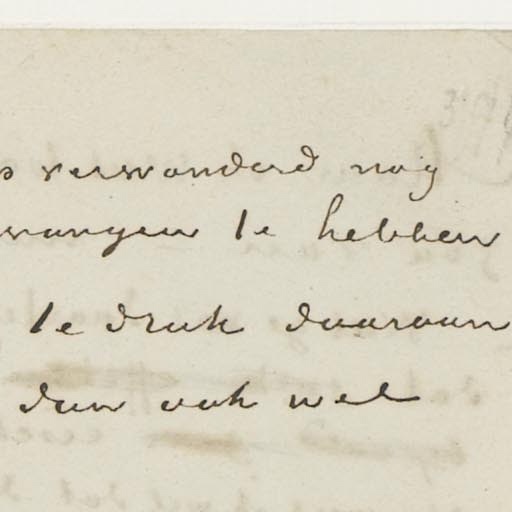 verwonderd nog
te hebben
te druk daaraan
dan ook wel